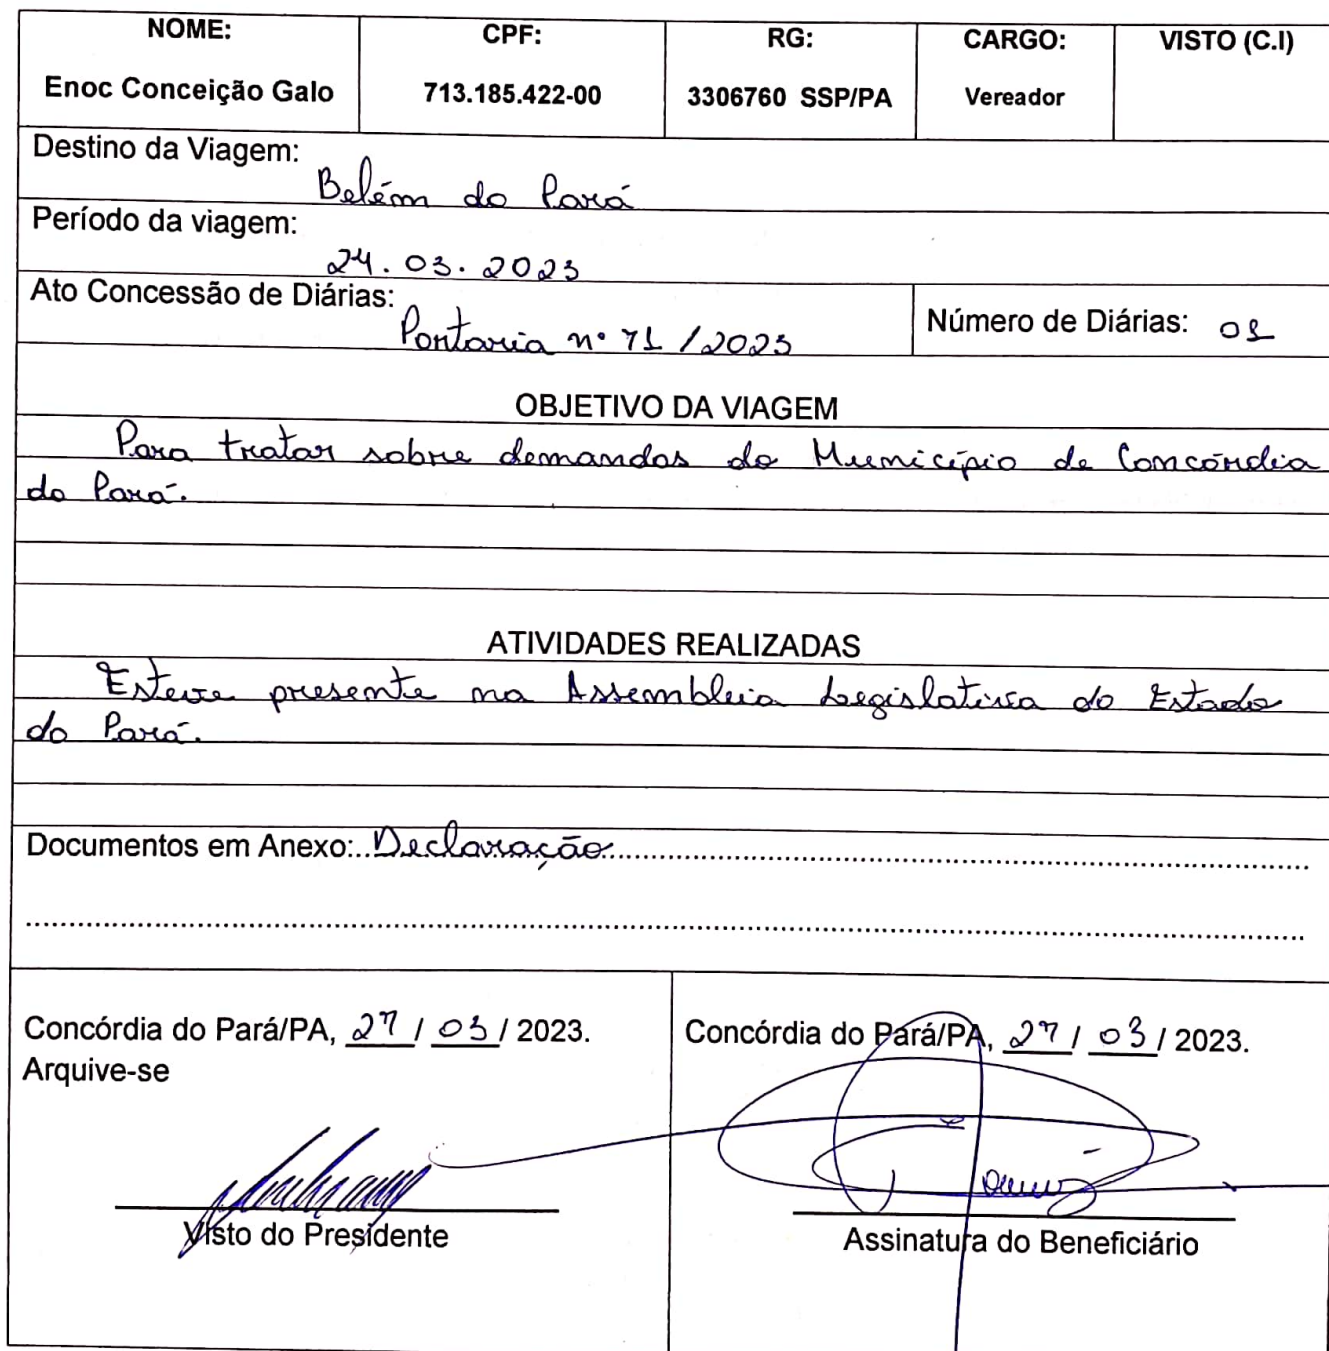 NOME: CPF: RG: CARGO: VISTO (C.I)
Enoc Conceição Galo 713.185.422-00 3306760 SSP/PA Vereador
Destino da Viagem:
Belém do Pará
Período da viagem:
24.03.2023
Ato Concessão de Diárias:
Portaria nº 71 /2023
Número de Diárias: 01
OBJETIVO DA VIAGEM
Para tratar sobre demandas do Município de Concórdia
do Pará.
ATIVIDADES REALIZADAS
Esteve presente na Assembleia Legislativa do Estado
do Pará.
Documentos em Anexo: Declaração
Concórdia do Pará/PA, 27 / 03 / 2023.
Arquive-se
Visto do Presidente
Concórdia do Pará/PA, 27 / 03 / 2023.
Assinatura do Beneficiário